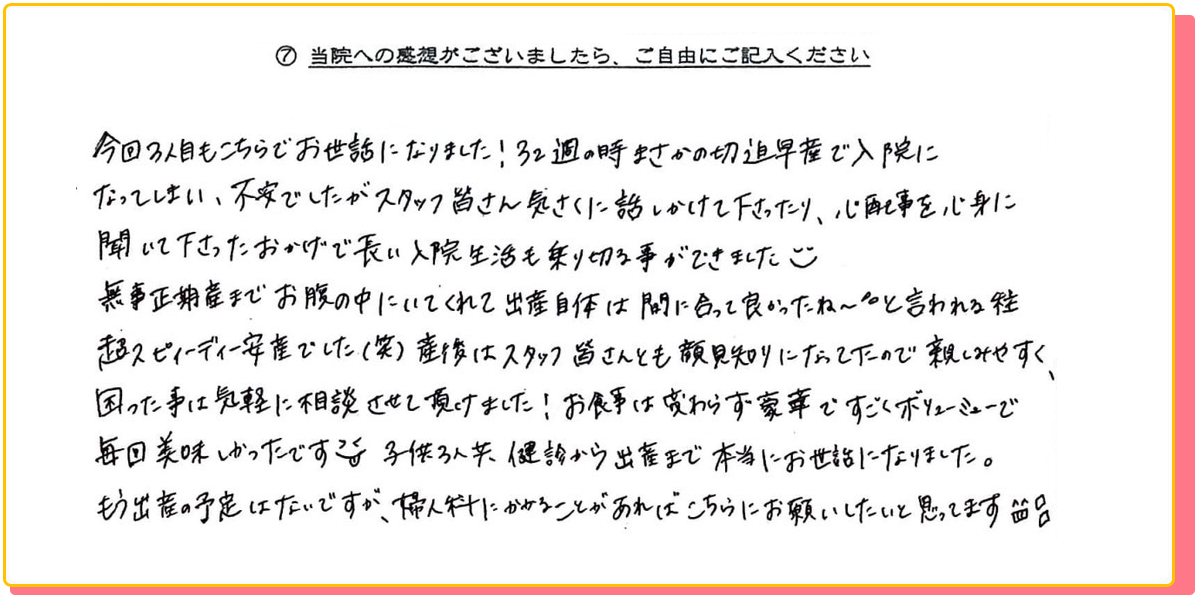 ⑦ 当院への感想がございましたら、ご自由にご記入ください
今回3人目もこちらでお世話になりました！32週の時まさかの切迫早産で入院に
なってしまい、不安でしたがスタッフ皆さん気さくに話しかけて下さったり、心配事を心身に
聞いて下さったおかげで長い入院生活も乗り切る事ができました
無事正期産までお腹の中にいてくれて出産自体は間に合って良かったね〜°°と言われる程
超スピィーディー安産でした(笑)産後はスタッフ皆さんとも顔見知りになってたので親しみやすく、
困った事は気軽に相談させて頂けました！お食事は変わらず豪華ですごくボリューミューで
毎回美味しかったです 子供3人共、健診から出産まで本当にお世話になりました。
もう出産の予定はないですが、婦人科にかかることがあればこちらにお願いしたいと思ってます